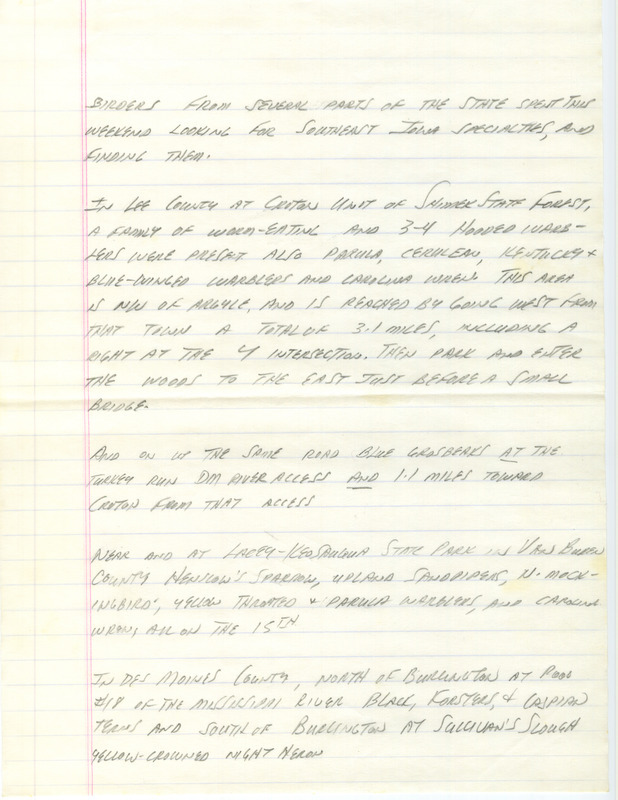 BIRDERS FROM SEVERAL PARTS OF THE STATE SPENT THIS
WEEKEND LOOKING FOR SOUTHEAST IOWA SPECIALTIES, AND
FINDING THEM.
IN LEE COUNTY AT CROTON UNIT OF SHIMEK STATE FOREST,
A FAMILY OF WORM-EATING AND 3-4 HOODED WARB-
LERS WERE PRESENT ALSO PARULA, CERULEAN, KENTUCKY +
BLUE-WINGED WARBLERS AND CAROLINA WREN. THIS AREA
IS NW OF ARGYLE, AND IS REACHED BY GOING WEST FROM
THAT TOWN A TOTAL OF 3.1 MILES, INCLUDING A
RIGHT AT THE Y INTERSECTION. THEN PARK AND ENTER
THE WOODS TO THE EAST JUST BEFORE A SMALL
BRIDGE.
AND ON THE SAME ROAD BLUE GROSBEAKS AT THE
TURKEY RUN DM RIVER ACCESS AND 1.1 MILES TOWARD
CROTON FROM THAT ACCESS
NEAR AND AT LACEY-KEOSAUQUA STATE PARK IN VAN BUREN
COUNTY HENSLOW'S SPARROW, UPLAND SANDPIPERS, N. MOCK-
INGBIRD, YELLOW THROATED + PARULA WARBLERS, AND CAROLINA
WREN; ALL ON THE 15TH
IN DES MOINES COUNTY, NORTH OF BURLINGTON AT POOL
#18 OF THE MISSISSIPPI RIVER BLACK, FORSTERS, + CASPIAN
TERNS AND SOUTH OF BURLINGTON AT SULLIVAN'S SLOUGH
YELLOW-CROWNED NIGHT HERON